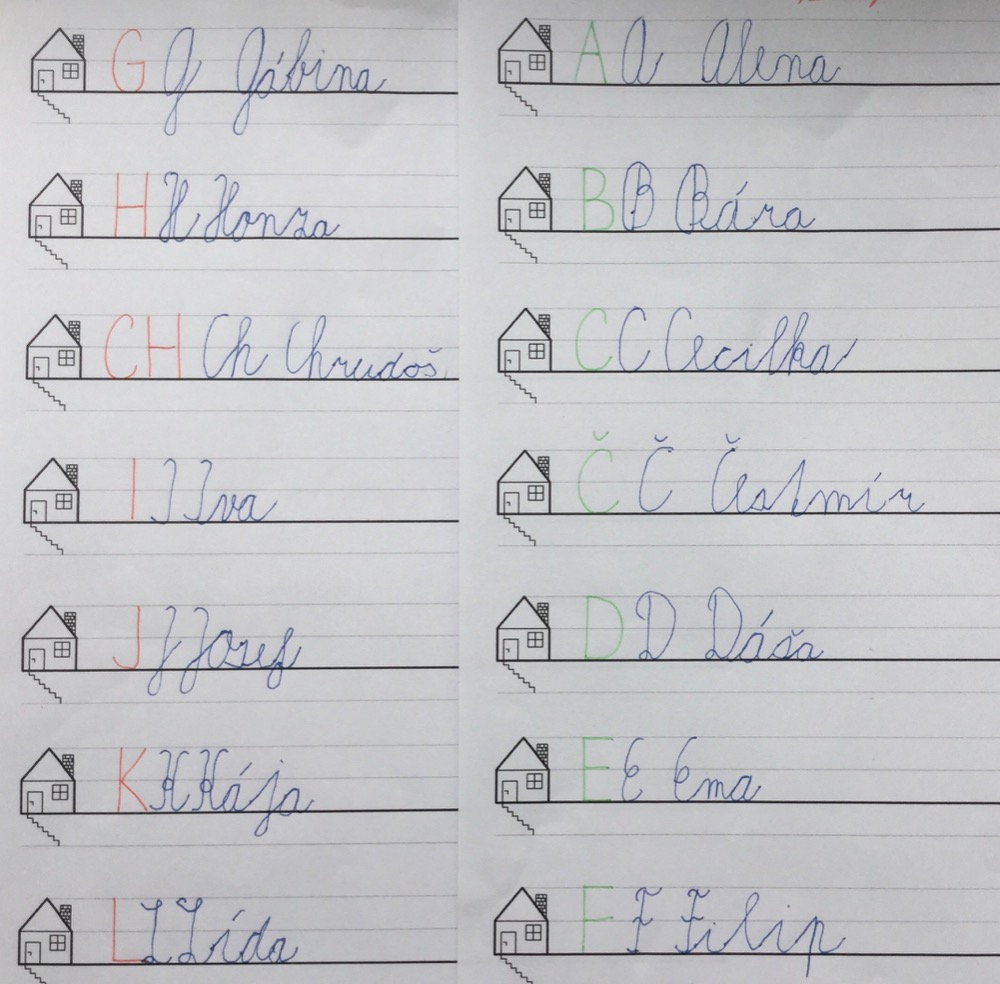 G G Gábina
H H Honza
CH Ch Chrudoš
I I Iva
J J Jozef
K K Kája
L L Lída
A A Alena
B B Bára
C C Cecilka
Č Č Čestmír
D D Dáša
E E Ema
F F Filip